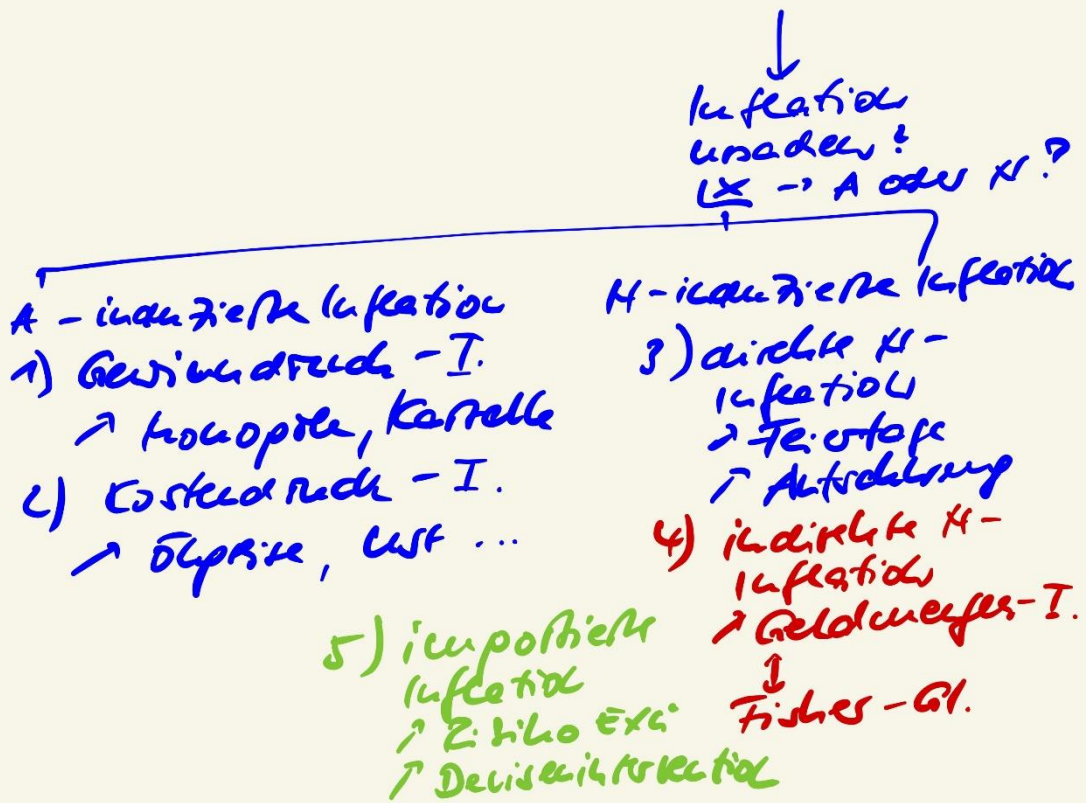 Inflation
ursachen?
→ A oder N?
A-induzierte Inflation
1) Gewinndruck-I.
↗ Monopole, Kartelle
2) Kostendruck-I.
↗ Ölpreise, Ust ...
N-induzierte Inflation
3) direkte N-
Inflation
↗ Feiertage
↗
4) indirekte N-
Inflation
↗ Geldmengen-I.
↕
Fisher-Gl.
5) importierte
Inflation
↗
↗ Devisenintervention